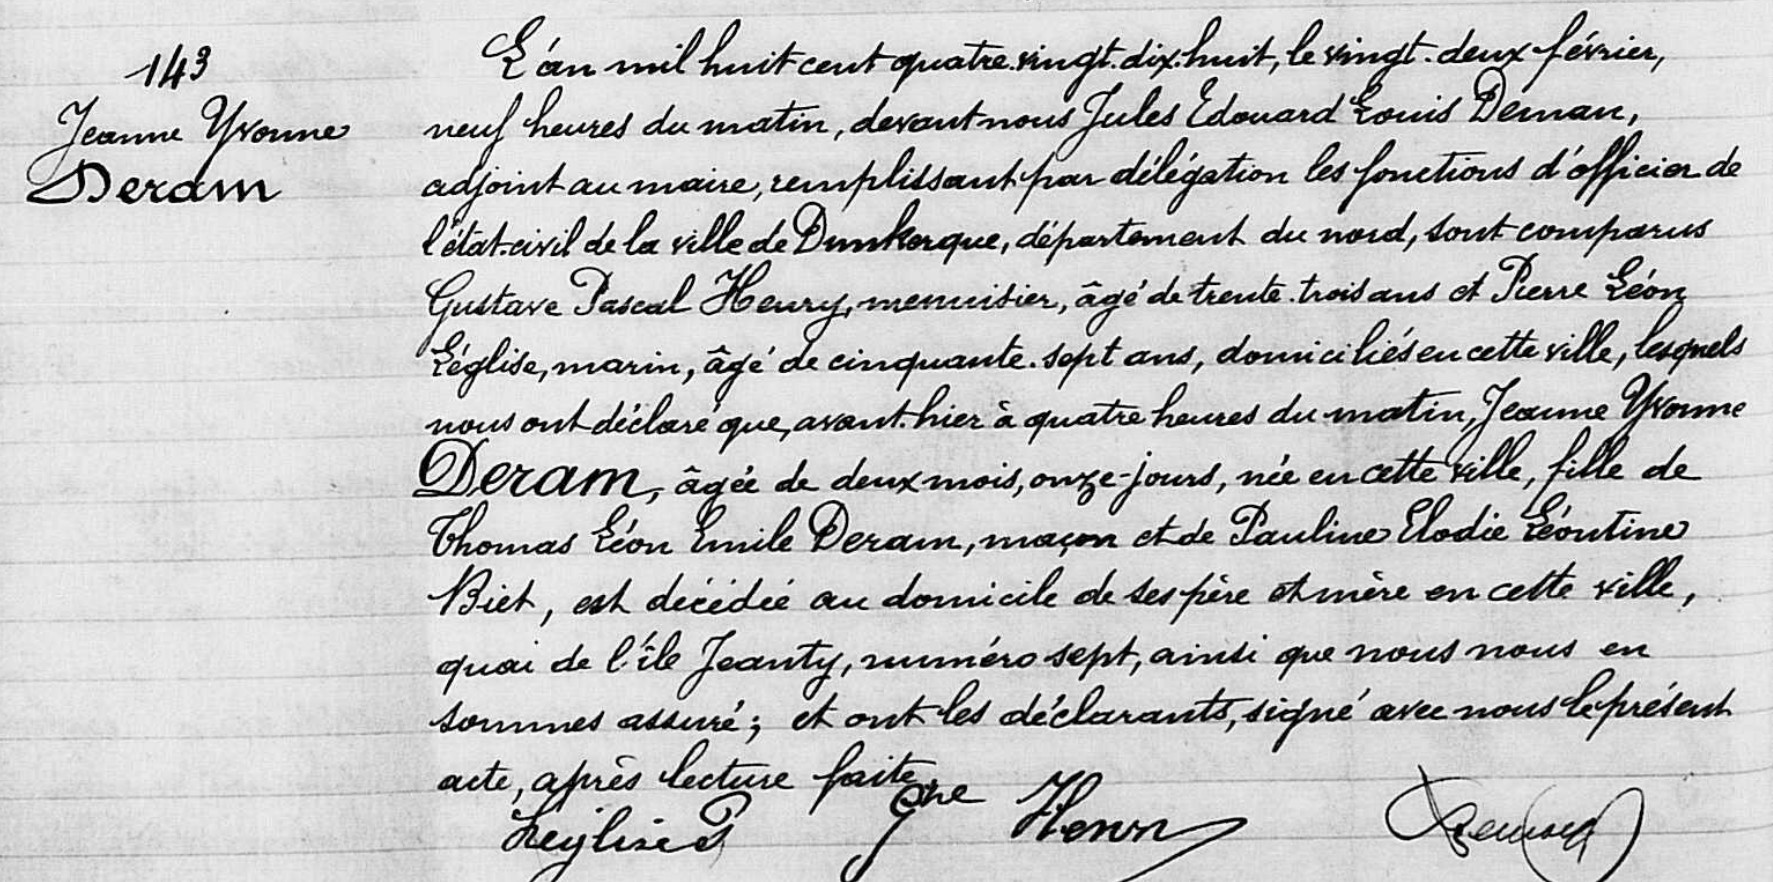 143
Jeanne Yvonne
Deram
L'an mil huit cent quatre.vingt.dix.huit, le vingt.deux février,
neuf heures du matin, devant nous Jules Edouard Louis Deman,
adjoint au maire, remplissant par délégation les fonctions d'officier de
l'état.civil de la ville de Dunkerque, département du nord, sont comparus
Gustave Pascal Henry, menuisier, âgé de trente.trois ans et Pierre Léon
Léglise, marin, âgé de cinquante.sept ans, domiciliés en cette ville, lesquels
nous ont déclaré que, avant.hier à quatre heures du matin, Jeanne Yvonne
Deram, âgée de deux mois, onze-jours, née en cette ville, fille de
Thomas Léon Emile Deram, maçon et de Pauline Elodie Léontine
Biet, est décédée au domicile de ses père et mère en cette ville,
quai de l'île Jeanty, numéro sept, ainsi que nous nous en
sommes assuré; et ont les déclarants, signé avec nous le présent
acte, après lecture faite.
Leglise P Gve Henry